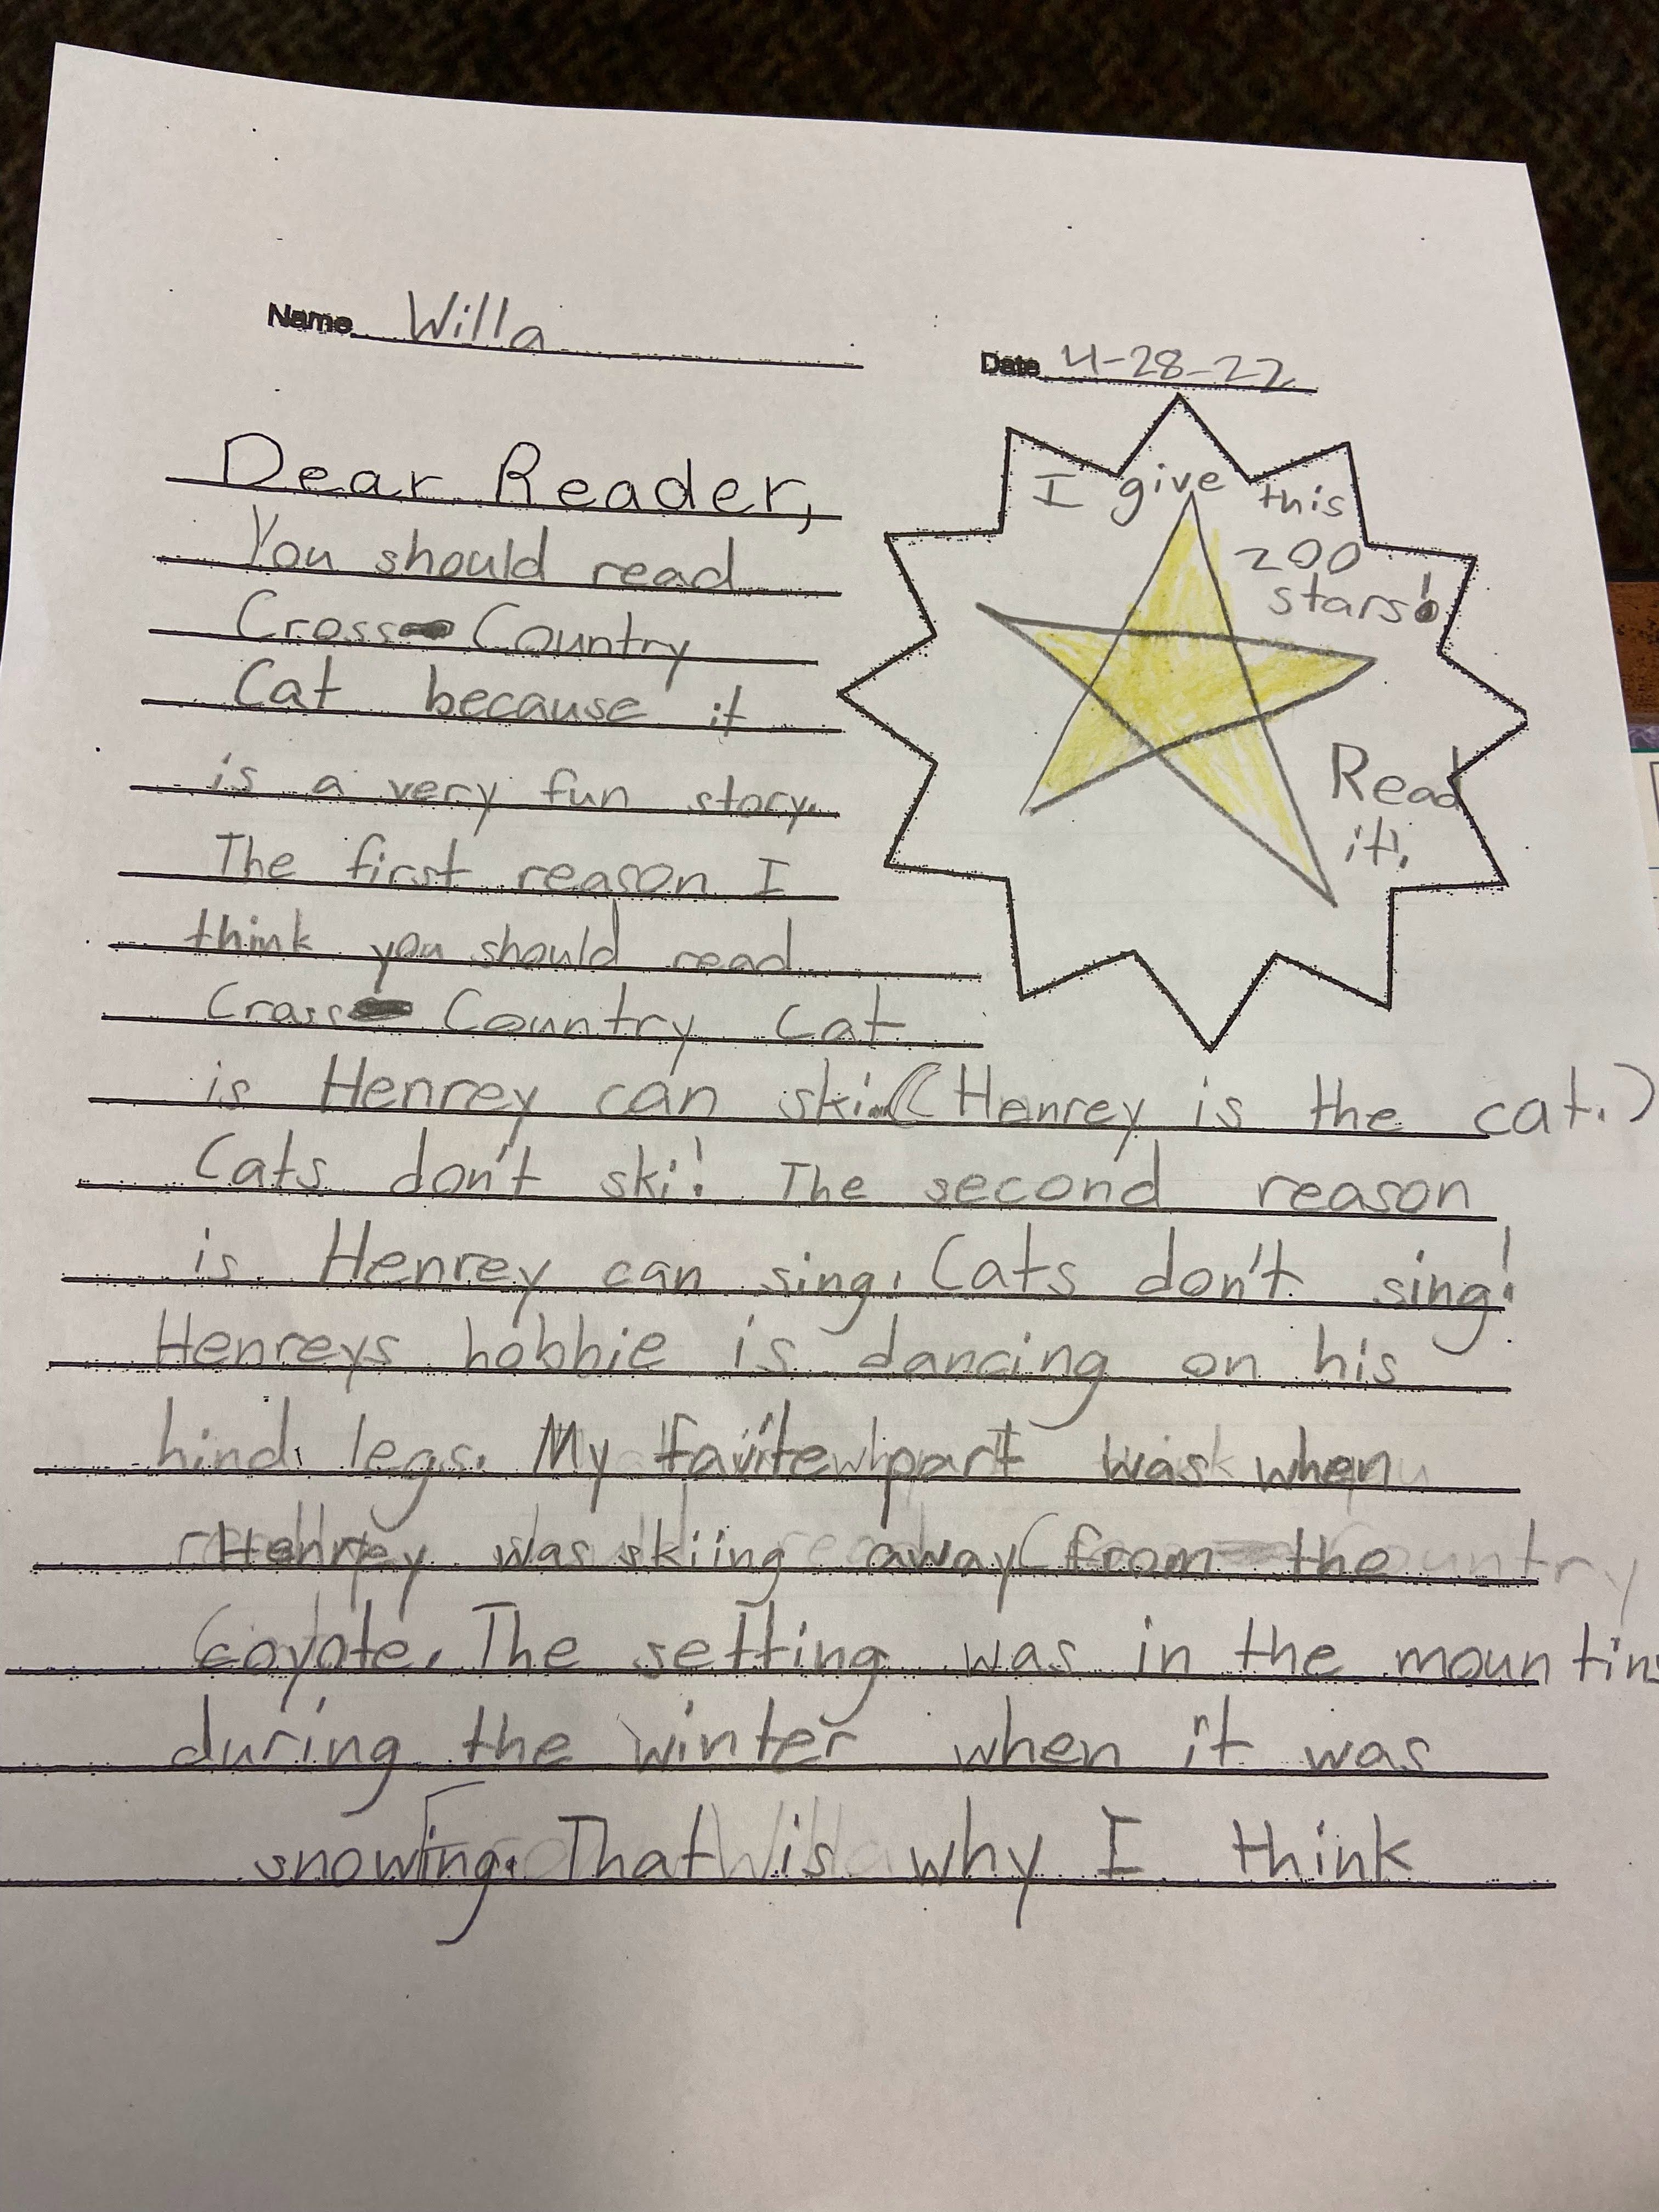 Name Willa
Date 4-28-22
I give this
200
stars!
Read
it!
Dear Reader,
You should read
Cross Country
Cat because it
is a very fun story.
The first reason I
think you should read
Cross Country Cat
is Henrey can ski. (Henrey is the cat.)
Cats don't ski! The second reason
is Henrey can sing. Cats don't sing!
Henreys hobbie is dancing on his
hind legs. My favite part was when
Henrey was skiing away from the
Coyote. The setting was in the mountins
during the winter when it was
snowing. That is why I think